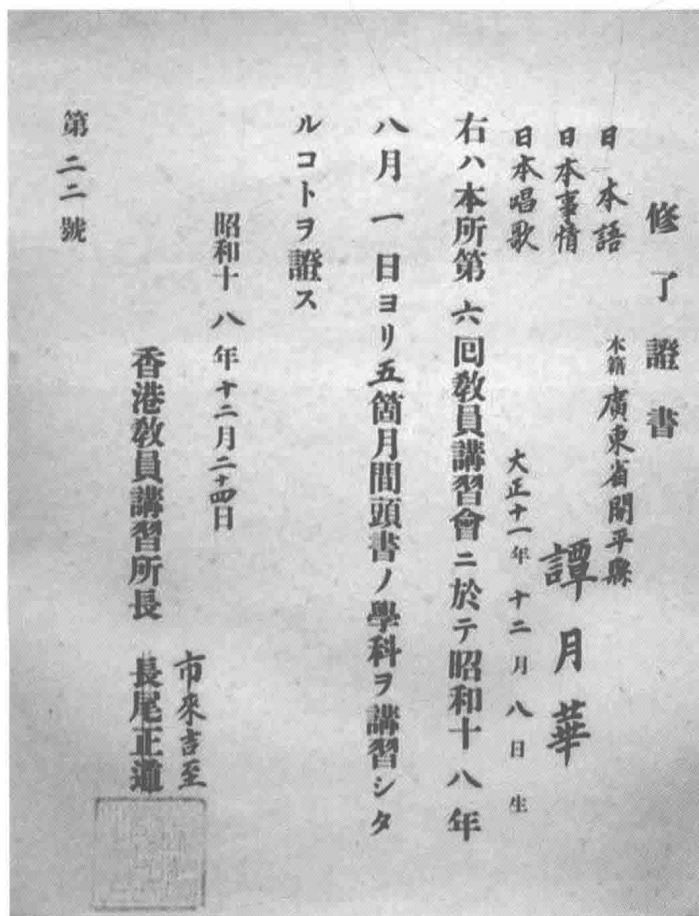 修了證書
日本語
日本事情
日本唱歌
本籍 廣東省開平縣
譚月華
大正十一年十二月八日生
右ハ本所第六囘教員講習會ニ於テ昭和十八年
八月一日ヨリ五箇月間頭書ノ學科ヲ講習シタ
ルコトヲ證ス
昭和十八年十二月二十四日
香港教員講習所長
市來吉至
長尾正道
第二二號